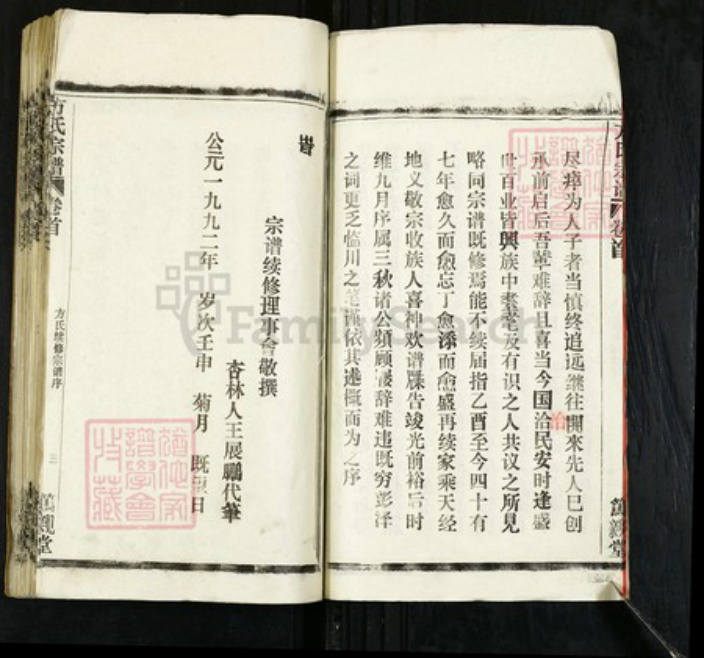 方氏宗谱
卷首
尽瘁为人子者当慎终追远继往開來先人巳创
承前启后吾辈难辞且喜当今国洽民安时逢盛
治
世百业皆興族中耄耋及有识之人共议之所見
略同宗谱既修焉能不续届指乙酉至今四十有
七年愈久而愈忘丁愈添而愈盛再续家乘天经
地义敬宗收族人喜神欢谱牒告竣光前裕后时
维九月序属三秋诸公頻顾屡辞难违既穷彭泽
之词更乏临川之笔谨依其述概而为之序
萬親堂
皆
宗谱续修理事會敬撰
杏林人王展鵬代筆
公元一九九二年 岁次壬申 菊月 既望日
方氏宗谱
卷首
方氏续修宗谱序
三
萬親堂
FamilySearch